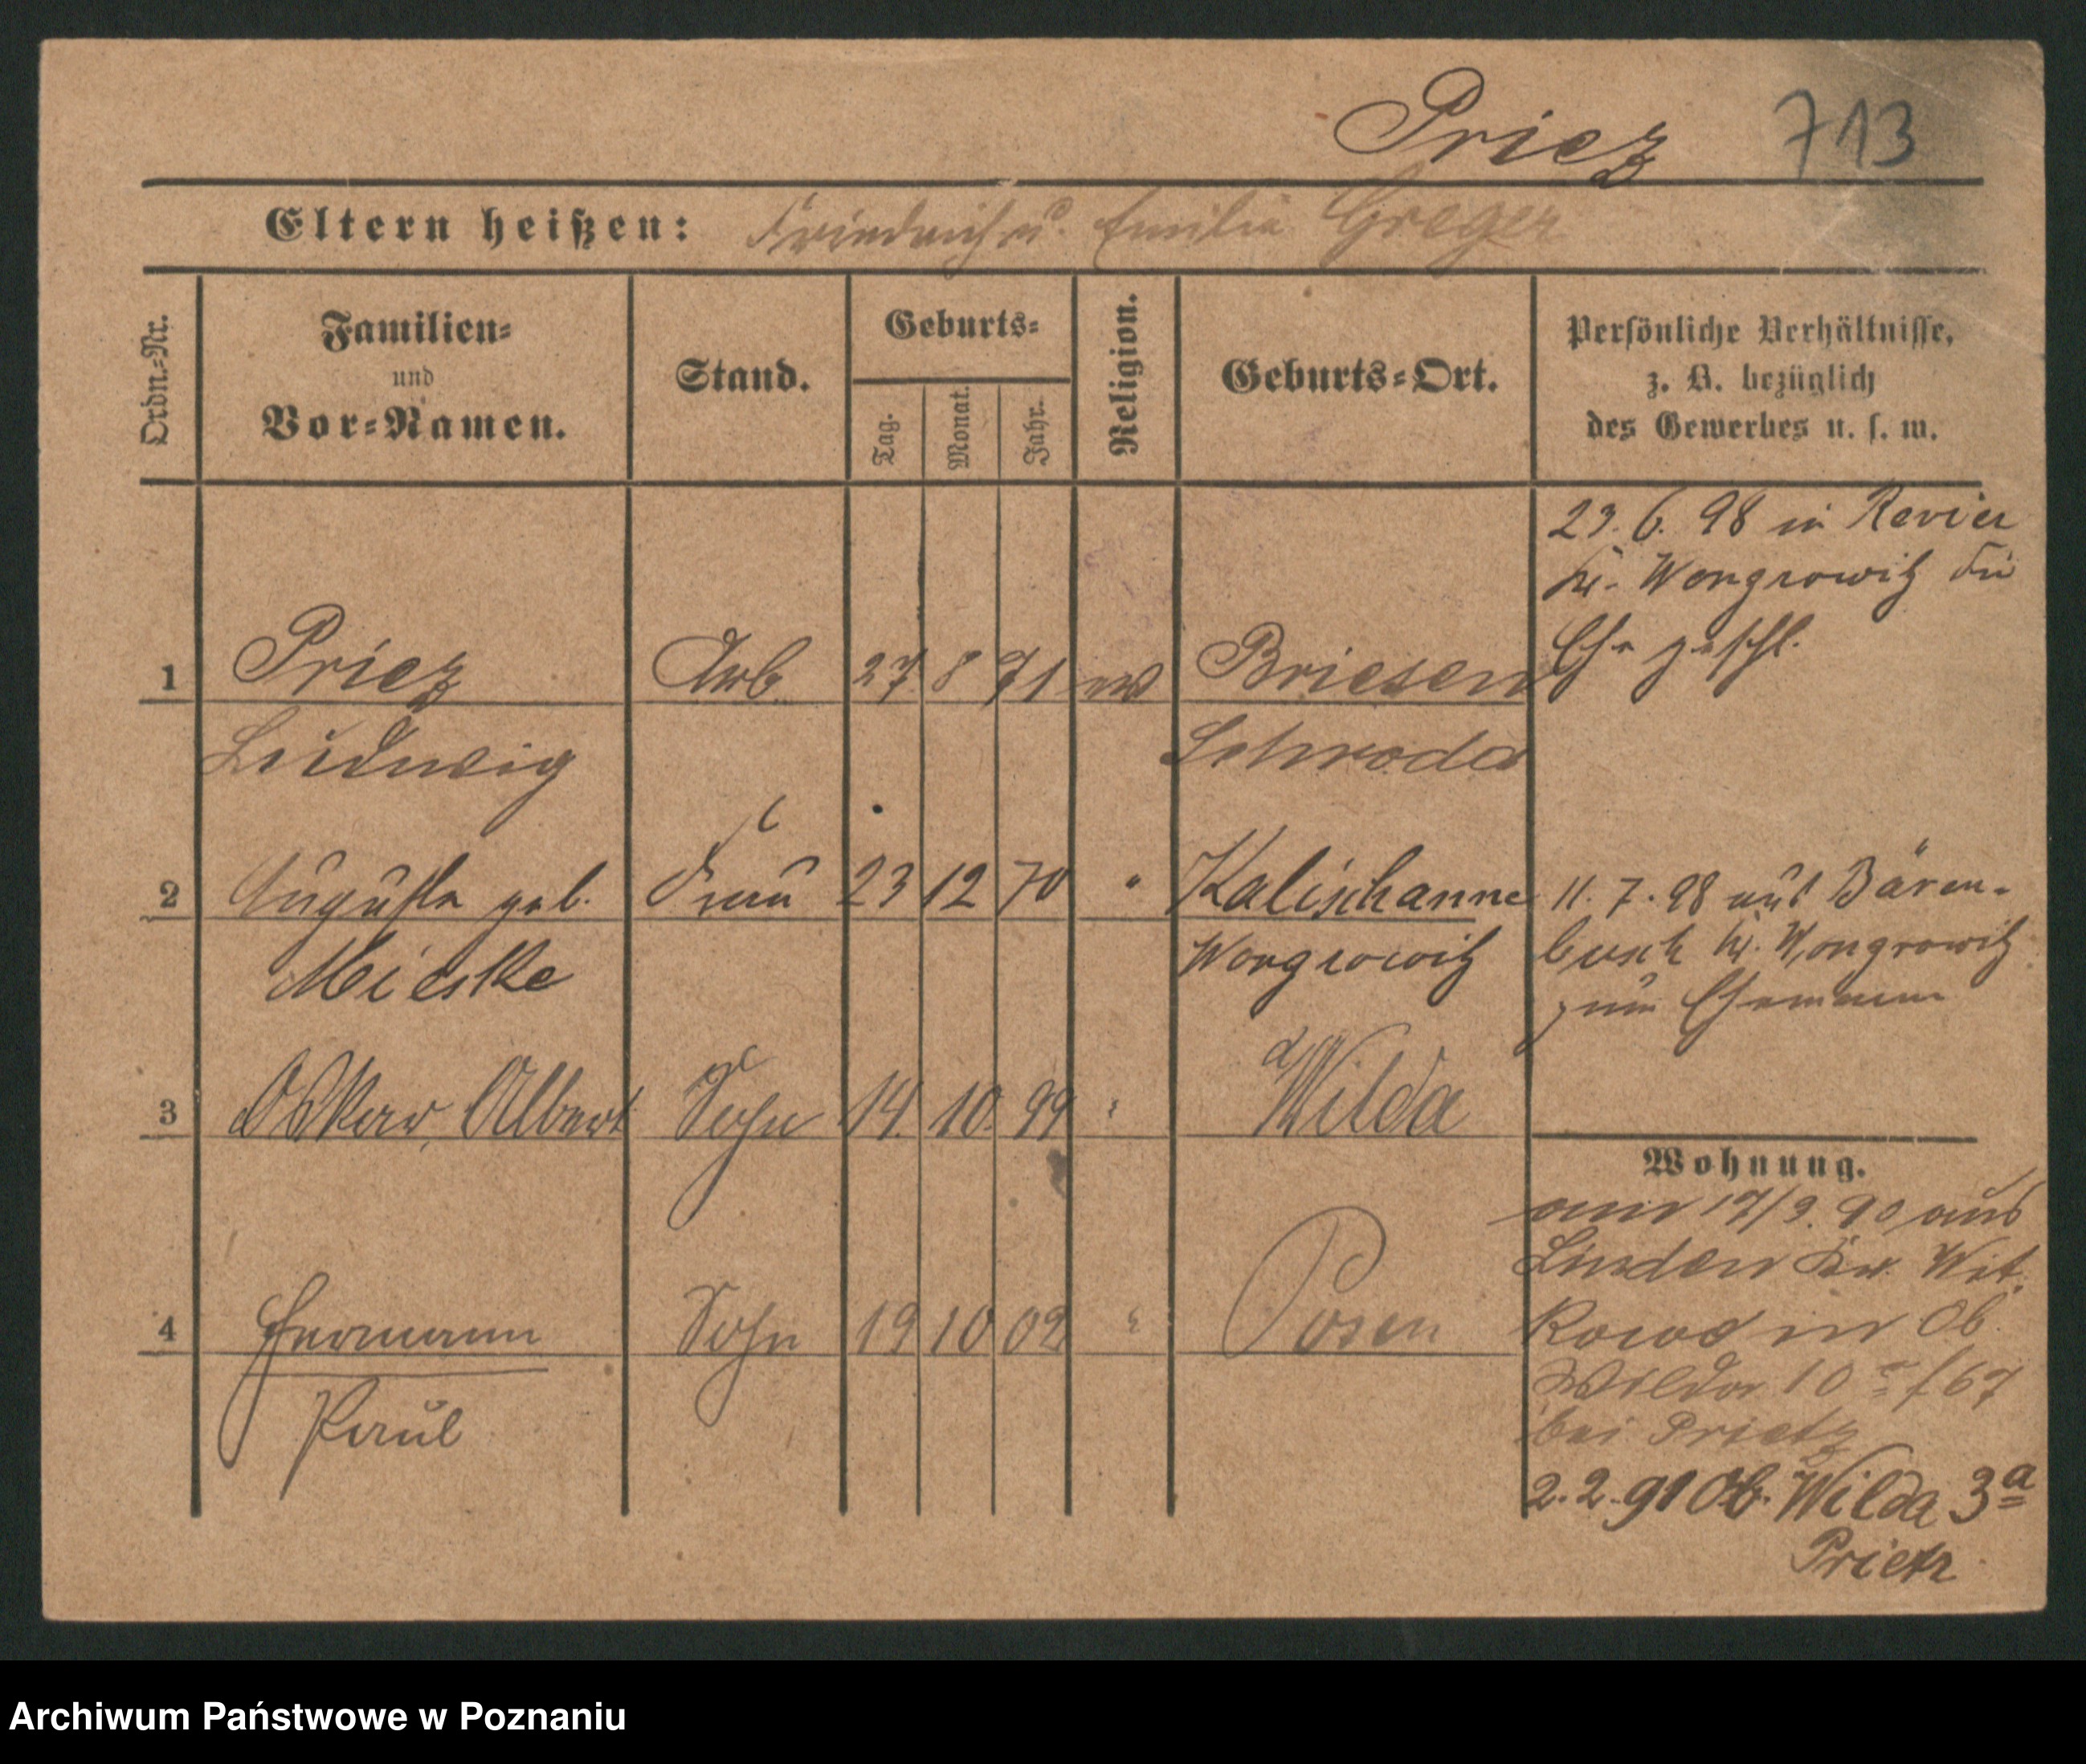 Priez 713
Eltern heißen: Friedrich u. Emilie Greger
Ordn.=Nr.
Familien=
und
Vor=Namen.
Stand.
Geburts=
Tag. Monat. Jahr.
Religion.
Geburts=Ort.
Persönliche Verhältnisse,
z. B. bezüglich
des Gewerbes u. s. w.
23. 6. 98 in Revier
Kr. Wongrowitz die
Ehe geschl.
1 Priez Arb 27 8 71 ev Briesen
Ludwig Schroda
2 Auguste geb. Frau 23 12 70 " Kalischanne
Mieske Wongrowitz
11. 7. 98 aus Bären-
busch Kr. Wongrowitz
zum Ehemann
3 Oskar, Albert Sohn 14. 10. 99 " Wilda
4 Hermann Sohn 19 10 02 " Posen
Paul
Wohnung.
17/9. 90 aus
Linden Kr. Wit
kowo in Ob.
Wilda 10 /67
bei Prietz
2. 2. 91 Ob. Wilda 3a
Prietz
Archiwum Państwowe w Poznaniu